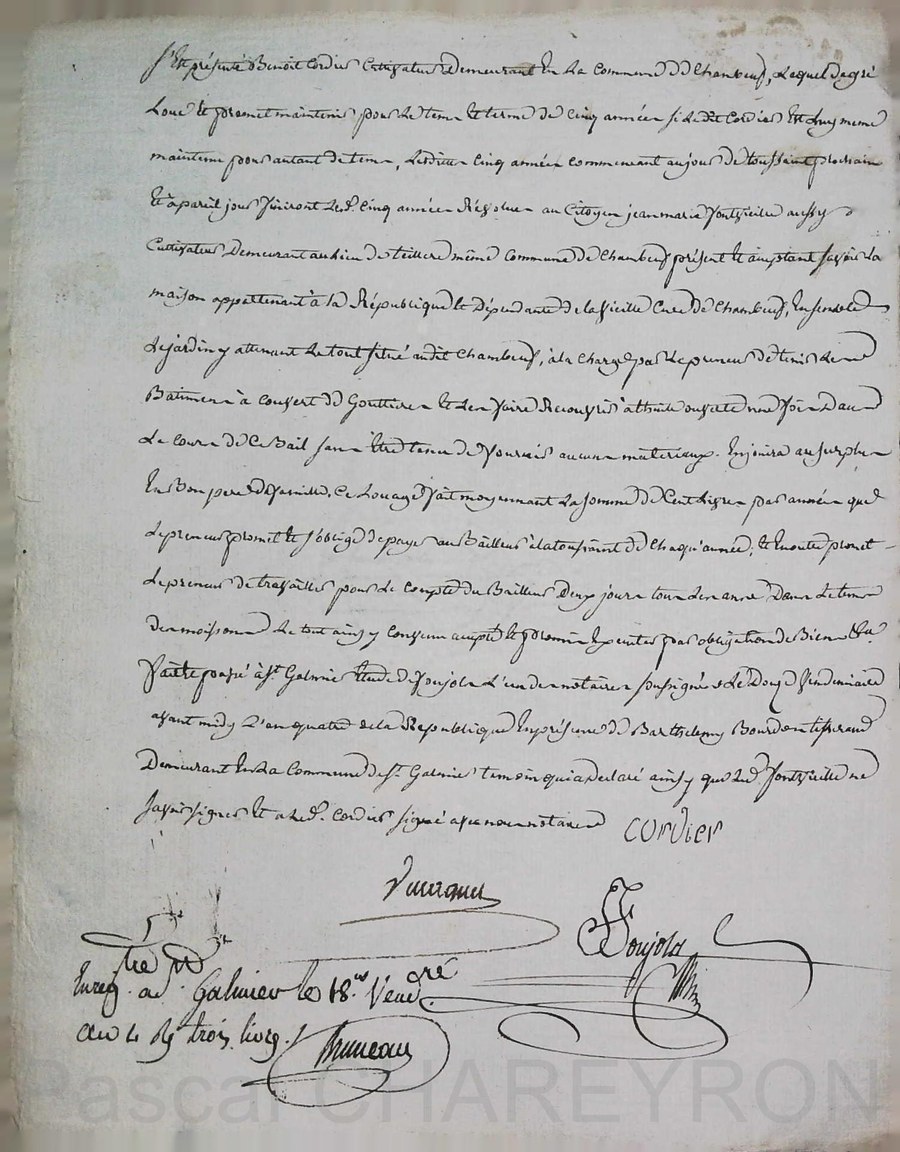 S'Est présenté Benoit Cordier Cultivateur Demeurant En La Commune de Chambeuf, Lequel de gré
Loue Et promet maintenir pour Le tems Et terme de Cinq années si Le dit Cordier Est Luy meme
maintenu pour autant de tems, Lesdittes Cinq années commencant au jour de toussaint prochain
Et à pareil jour finiront Lesd. Cinq années Révolues au Citoyen jean marie fontvieille aussy
Cultivateur Demeurant au lieu de teillere même Commune de Chambeuf présent Et acceptant savoir La
maison appartenant à la République Et Dépendante de la Vieille Cure de Chambeuf, Ensemble
Le jardin y attenant Le tout situé audit Chambeuf, à la Charge par Le preneur de tenir Les
Batimens à Couvert de Gouttieres Et Les faire Recouvrir à thuile ouverte une fois Dans
Le cours de Ce Bail sans Etre tenu de fournir aucuns materiaux. En jouira au surplus
En Bon pere de famille. Ce Louage fait moyennant La somme de Cent Livres par année que
Le preneur promet Et s'oblige de payer au Bailleur à la toussaint de Chaqu'année; Et En outre promet
Le preneur de travailler pour Le Compte du Bailleur Deux jours tous Les ans Dans Le tems
des moissons Le tout ainsy Convenu accepté Et promis Executer par obligation de Biens &a.
Fait Et passé à St. Galmier Etude de foujols L'un des notaires soussignés Le Douze Vendemiaire
avant midy L'an quatre de la Republique En présence de Barthelemy Bourdon tisserand
Demeurant En La Commune de St. Galmier temoin qui a declaré ainsy que Led. fontvieille ne
savoir signer Et a Led. Cordier signé avec nous notaires
cordier
foujols
Enreg. tré a St. Galmier le 18. Vendre
an 4 Rç trois livres
Bruneau
Pascal CHAREYRON